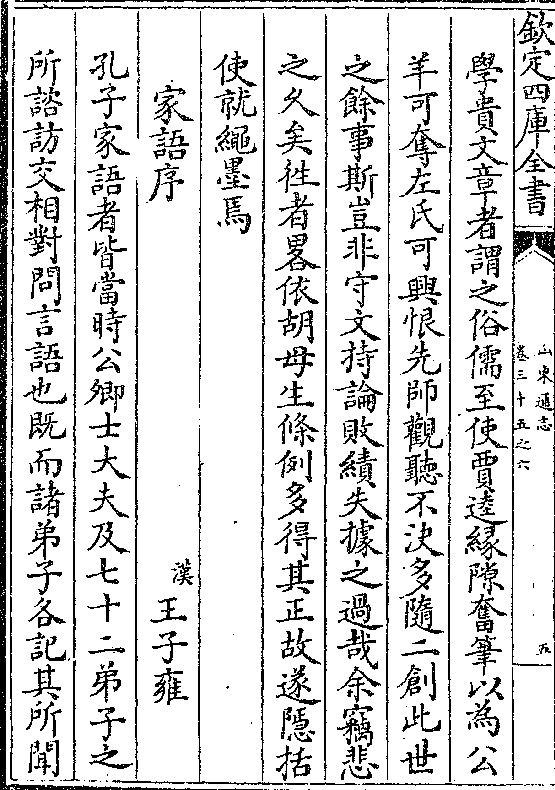 欽定四庫全書
山東通志
卷三十五之六
五
學貴文章者謂之俗儒至使賈逵緣隙奮筆以為公
羊可奪左氏可興恨先師觀聽不決多隨二創此世
之餘事斯豈非守文持論敗績失據之過哉余竊悲
之久矣徃者畧依胡母生條例多得其正故遂隱括
使就繩墨焉
家語序
漢王子雍
孔子家語者皆當時公卿士大夫及七十二弟子之
所諮訪交相對問言語也既而諸弟子各記其所聞